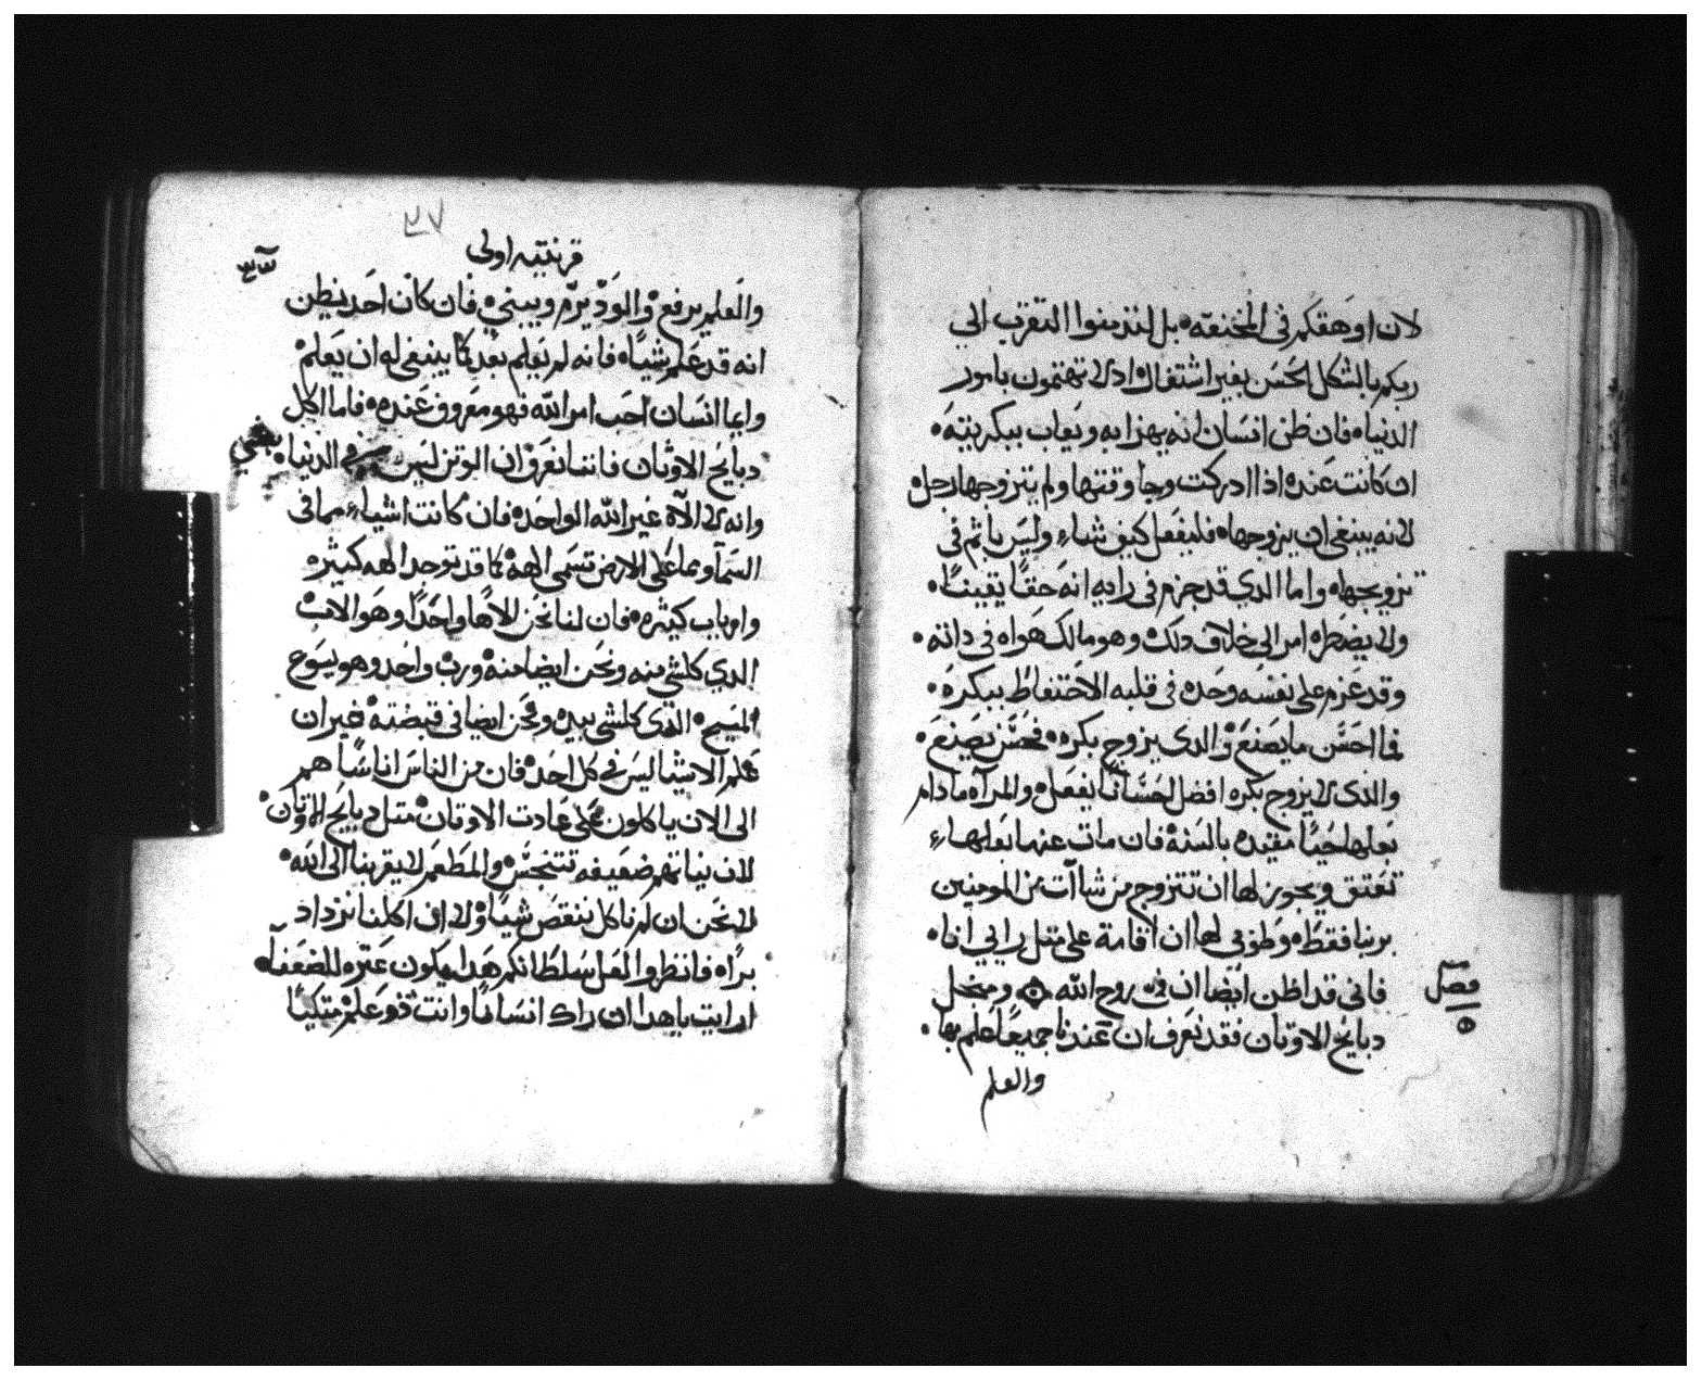 لان اوهقكم في المخنقه بل لتدمنوا التقرب الي
ربكم بالشكل الحسن بغير اشتغال اد لا تهتمون بامور
الدنياه فان ظن انسان انه يهزا به ويعاب ببكريته
ان كانت عنده اذا ادركت وجا وقتها ولم يتزوجها رجل
لانه ينبغي ان يزوجها فليفعل كيف شاء وليس ياثم في
تزويجها واما الدي قد جزم في رايه انه حقا يقينا
ولا يضطره امر الى خلاف دلك وهو مالك هواه في داته
وقد عزم على نفسه وحده في قلبه الاحتفاظ ببكره
فما احسن ما يصنع والدي يزوج بكره فحسن يصنع
والدى لا يزوج بكره افضل احسانا يفعل والمراه مادام
بعلها حيا مقيده بالسنة فان مات عنها بعلها
تعتق ويجوز لها ان تتزوج من شاآت من المومنين
بربنا فقط وطوبى لها ان اقامة على متل رايي انا
فاني قد اظن ايضا ان في روح الله ومن جل
فصل
٥
دبايح الاوتان فقد نعرف ان عندنا جميعا علم بها
والعلم
٣٧
قرنتيه اولى
والعلم يرفع والود يرم ويبني فان كان احد يظن
انه قد علم شيا فانه لم يعلم بعد كما ينبغى له ان يعلم
وايما انسان احب امر الله فهو معروف عنده فاما اكل
دبايح الاوتان فاننا نعرف ان الوتن ليس في الدنيا بشي
وانه لا الاه غير الله الواحد فان كانت اشياء مما في
السمآ ومما على الارض تسمى الهة كما قد توجد الهه كتيره
وارباب كتيره فان لنا نحن الاها واحدا وهو الاب
الدي كلشي منه ونحن ايضا منه ورب واحد وهو يسوع
المسيح الدي كلشي بيده ونحن ايضا في قبضته غير ان
علم الاشيا ليس في كل احد فان من الناس اناسا هم
الى الان ياكلون على عادت الاوتان متل دبايح الاوتان
لان نياتهم ضعيفه تتنجس والمطعم لا يقربنا الى الله
لا نحن ان لم ناكل ننقص شيا ولا ان اكلنا نزداد
برا فانظروا لعل سلطانكم هدا يكون عتره للضعفآ
ارايت ياهدا ان راك انسانا وانت دو علم متكيا